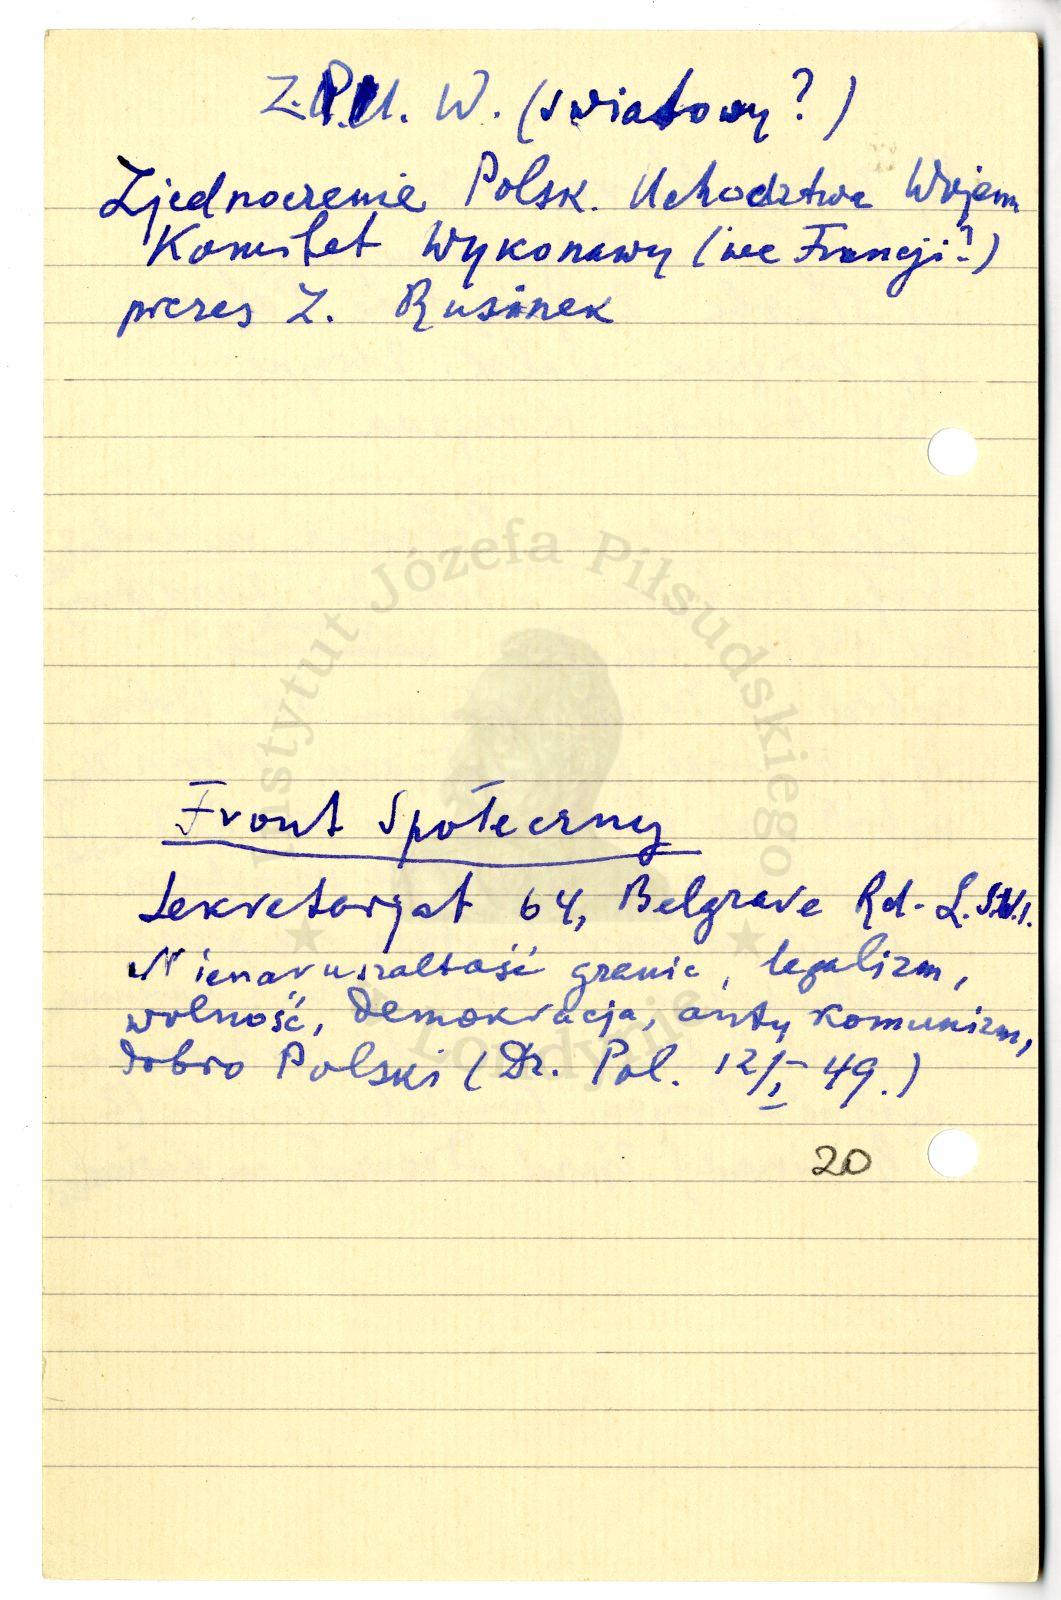 Z.P.U. W. (światowy?)
Zjednoczenie Polsk. Uchodztwa Wojenn
Komitet Wykonawy (we Francji?)
prezes Z. Rusinek
Instytut Józefa Piłsudskiego
Front Społeczny
Sekretarjat 64, Belgrave Rd. L. S.W.1.
Nienaruszalność granic, legalizm,
wolność, demokracja, anty komunizm,
dobro Polski (Dz. Pol. 12/I 49.)
w Londynie
20